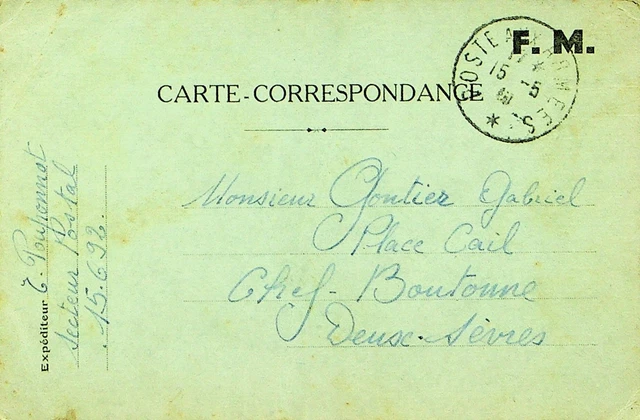 F. M.
POSTE AUX ARMEES
15 -5
CARTE-CORRESPONDANCE
Monsieur Gontier Gabriel
Place Cail
Chef-Boutonne
Deux-Sèvres
Expéditeur
Secteur Postal
15.692.